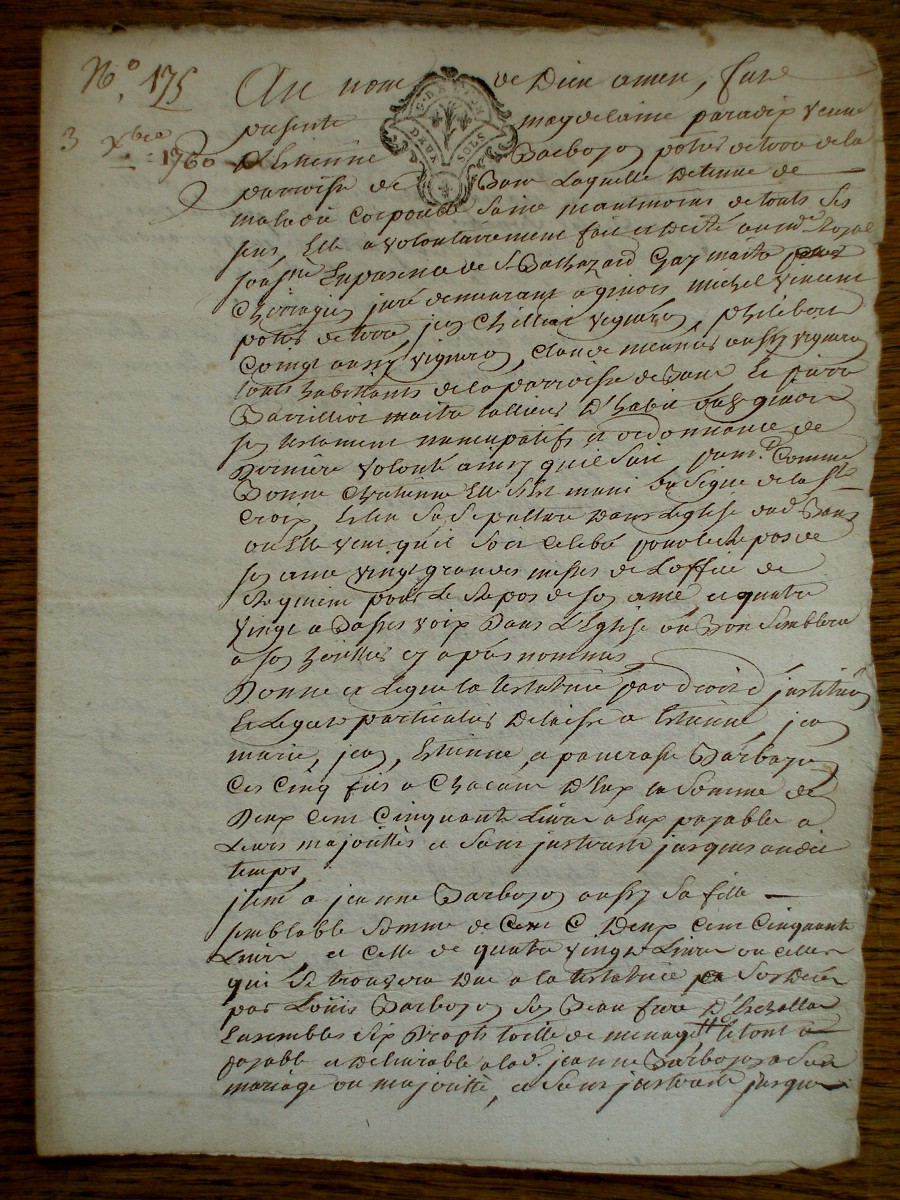 N.º 175
3 Xbre
1760
Au nom de Dieu amen, fut
presente magdelaine paradix veuve
d'Estienne Barbozon potier de terre de la
parroisse de Bans Laquelle detenue de
maladie corporelle saine neantmoins de touts ses
sens, Elle a volontairement fait et Dicté au nre Royal
sousne En presence de Sr Balthazard Gay maitre
chirurgien juré demeurant a givors michel vincent
potier de terre, jean vigneron, philibert
Coingt aussy vigneron, claude meunier aussy vigneron
touts habittants de la parroisse de Bans Et pierre
maitre tallieur D'habit aud givors
son testament nuncupatifs et ordonnance de
Derniere volonté ainsy quil suit premt Comme
Bonne chretienne Elle s'est muni du signe de la ste
croix, Eslu sa sepulture Dans l'Eglise dud Bans
ou Elle veut qu'il soit celebré pour le repos de
son ame vingt grandes messes de L'office de
Requiem pour Le Repos de son ame et quatre
vingt a Basses voix Dans L'Eglise ou Bon semblera
a son heritier cy apres nommé,
Donne et Legue la testatrice par droit d'jnstitution
Et Legat particulier delaisse a Estienne, jean
marie, jean, Estienne, a pancrasse Barbozon
ces cinq fils a chacun D'Eux la somme de
Deux cent cinquante Livres a Eux payable a
Leurs majorittés et sans jnterest jusques audit
temps,
jtem a jeanne Barbozon aussy sa fille
semblable somme de Deux cent cinquante
Livres, et celle de quatre vingt Livres ou celle
qui se trouvera Due a la testatrice a son Deces
par Loüis Barbozon son Beau frere
Ensembles six Draps toille de menage le tout
payable et Delivrable a lad. jeanne Barbozon a son
mariage ou majoritté, et sans jnterest jusques
G. D. LYON
DEUX SOLS